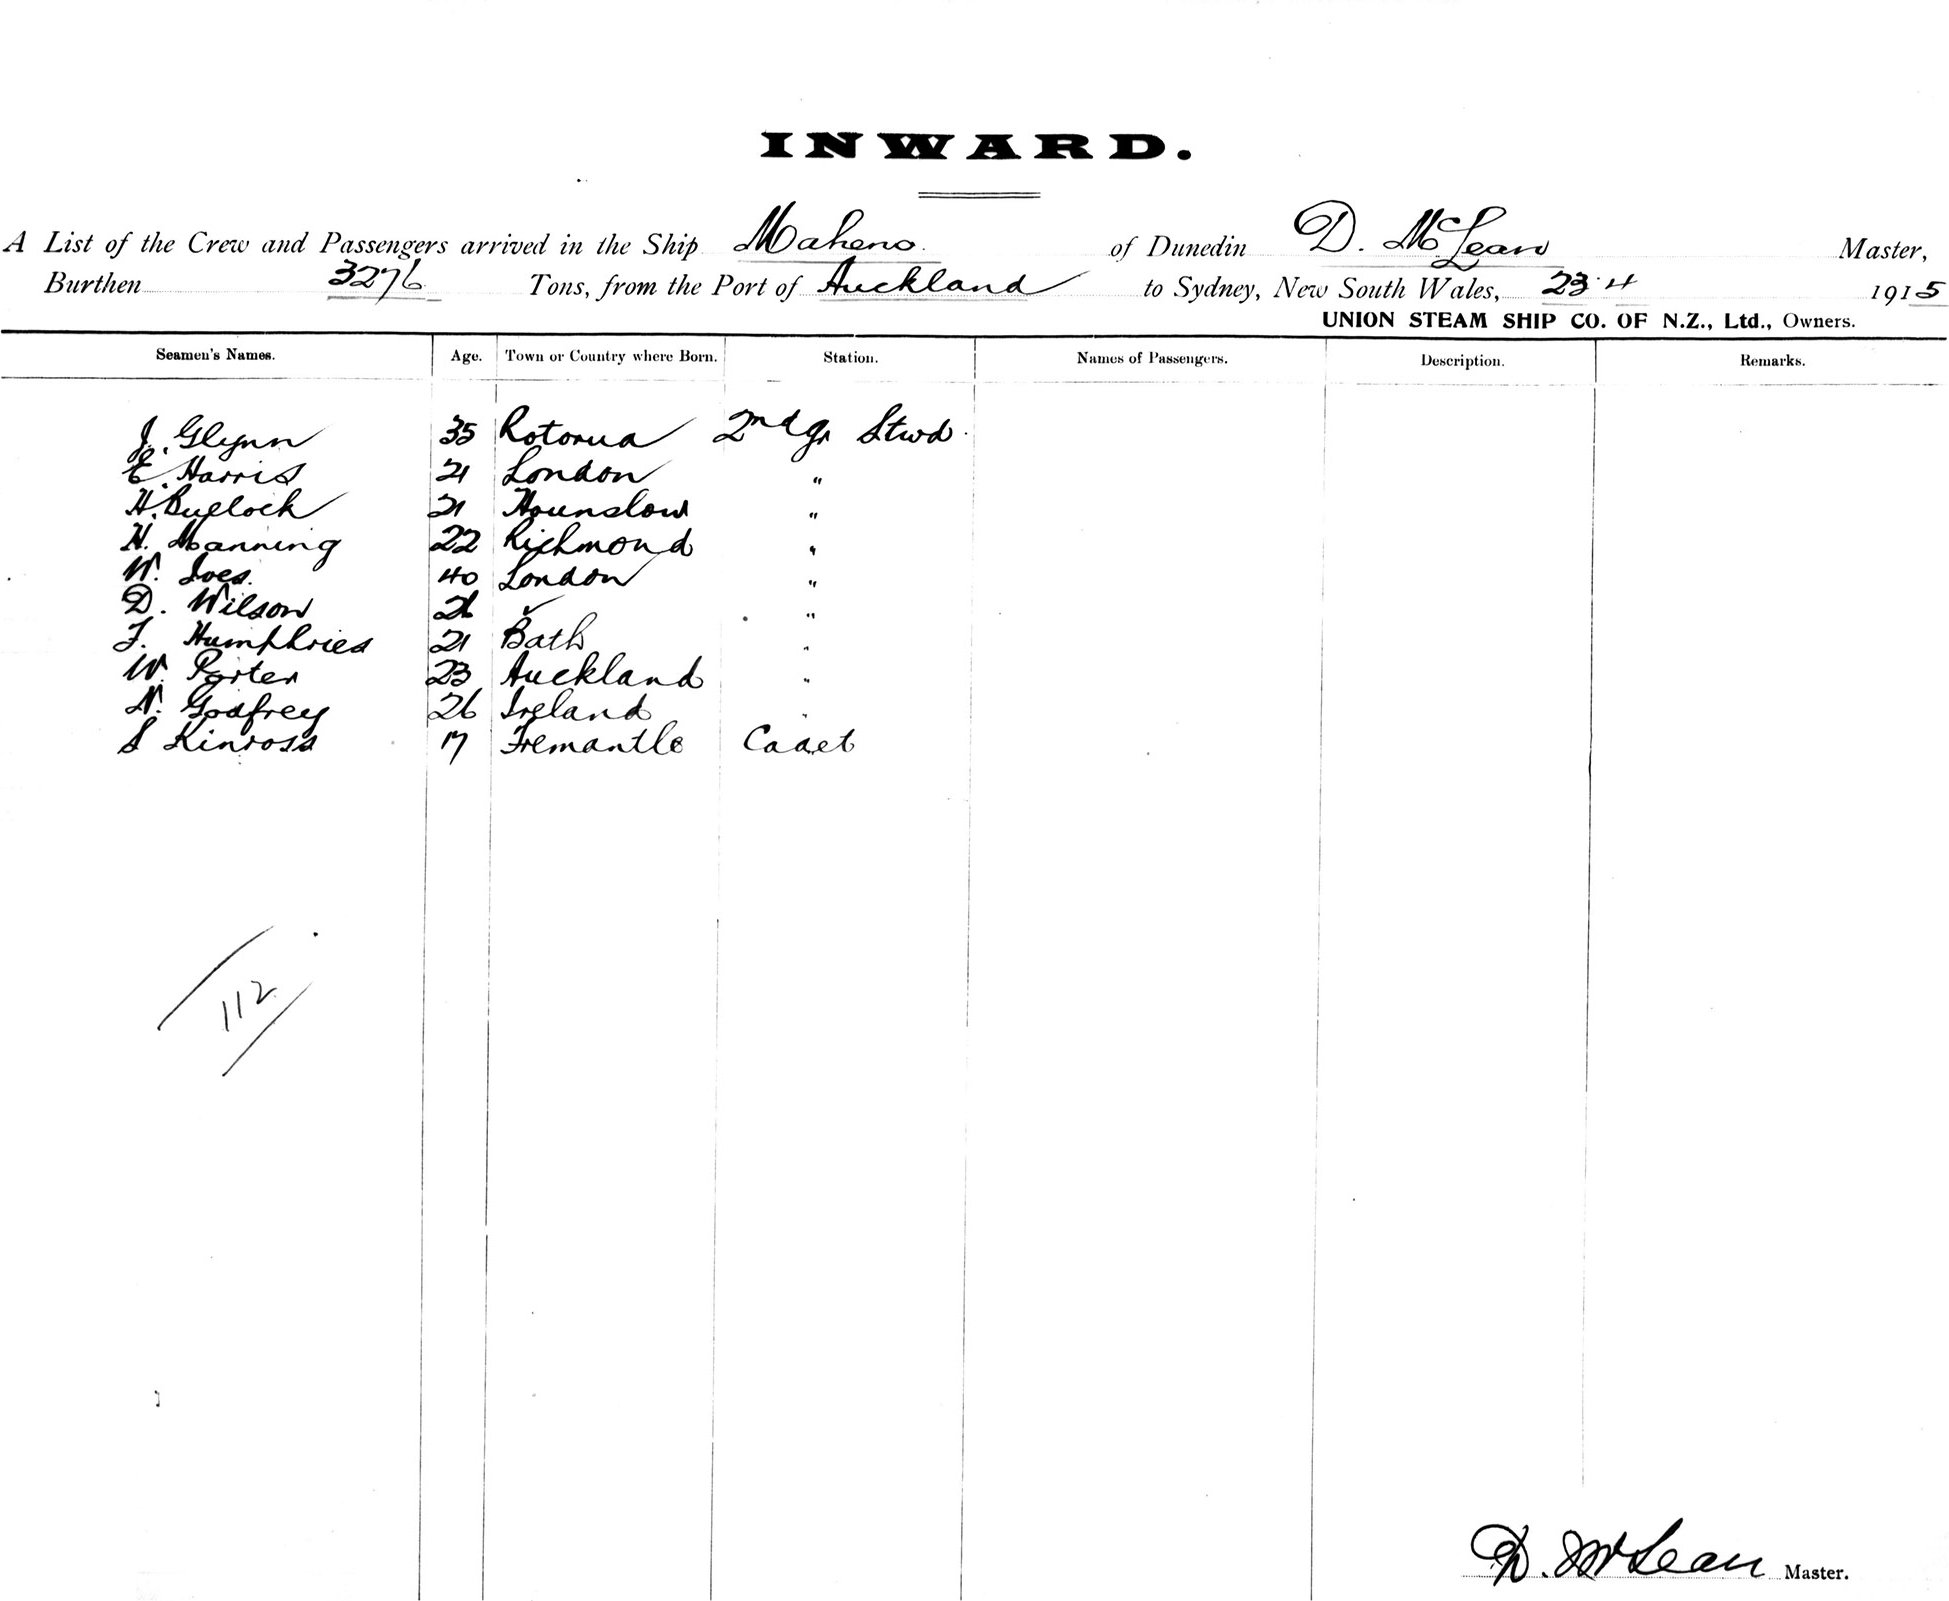 INWARD.
A List of the Crew and Passengers arrived in the Ship Maheno of Dunedin D. McLean Master,
Burthen 3276 Tons, from the Port of Auckland to Sydney, New South Wales, 23.4 1915
UNION STEAM SHIP CO. OF N.Z., Ltd., Owners.
Seamen's Names. Age. Town or Country where Born. Station. Names of Passengers. Description. Remarks.
J. Glynn 35 Rotorua 2nd gr Stwd.
E. Harris 21 London "
H. Bullock 21 Hounslow "
H. Manning 22 Richmond "
W. Ives. 40 London "
D. Wilson 26 "
F. Humphries 21 Bath "
W. Porter 23 Auckland "
N. Godfrey 26 Ireland "
S Kinross 17 Fremantle Cadet
112
D. McLean Master.